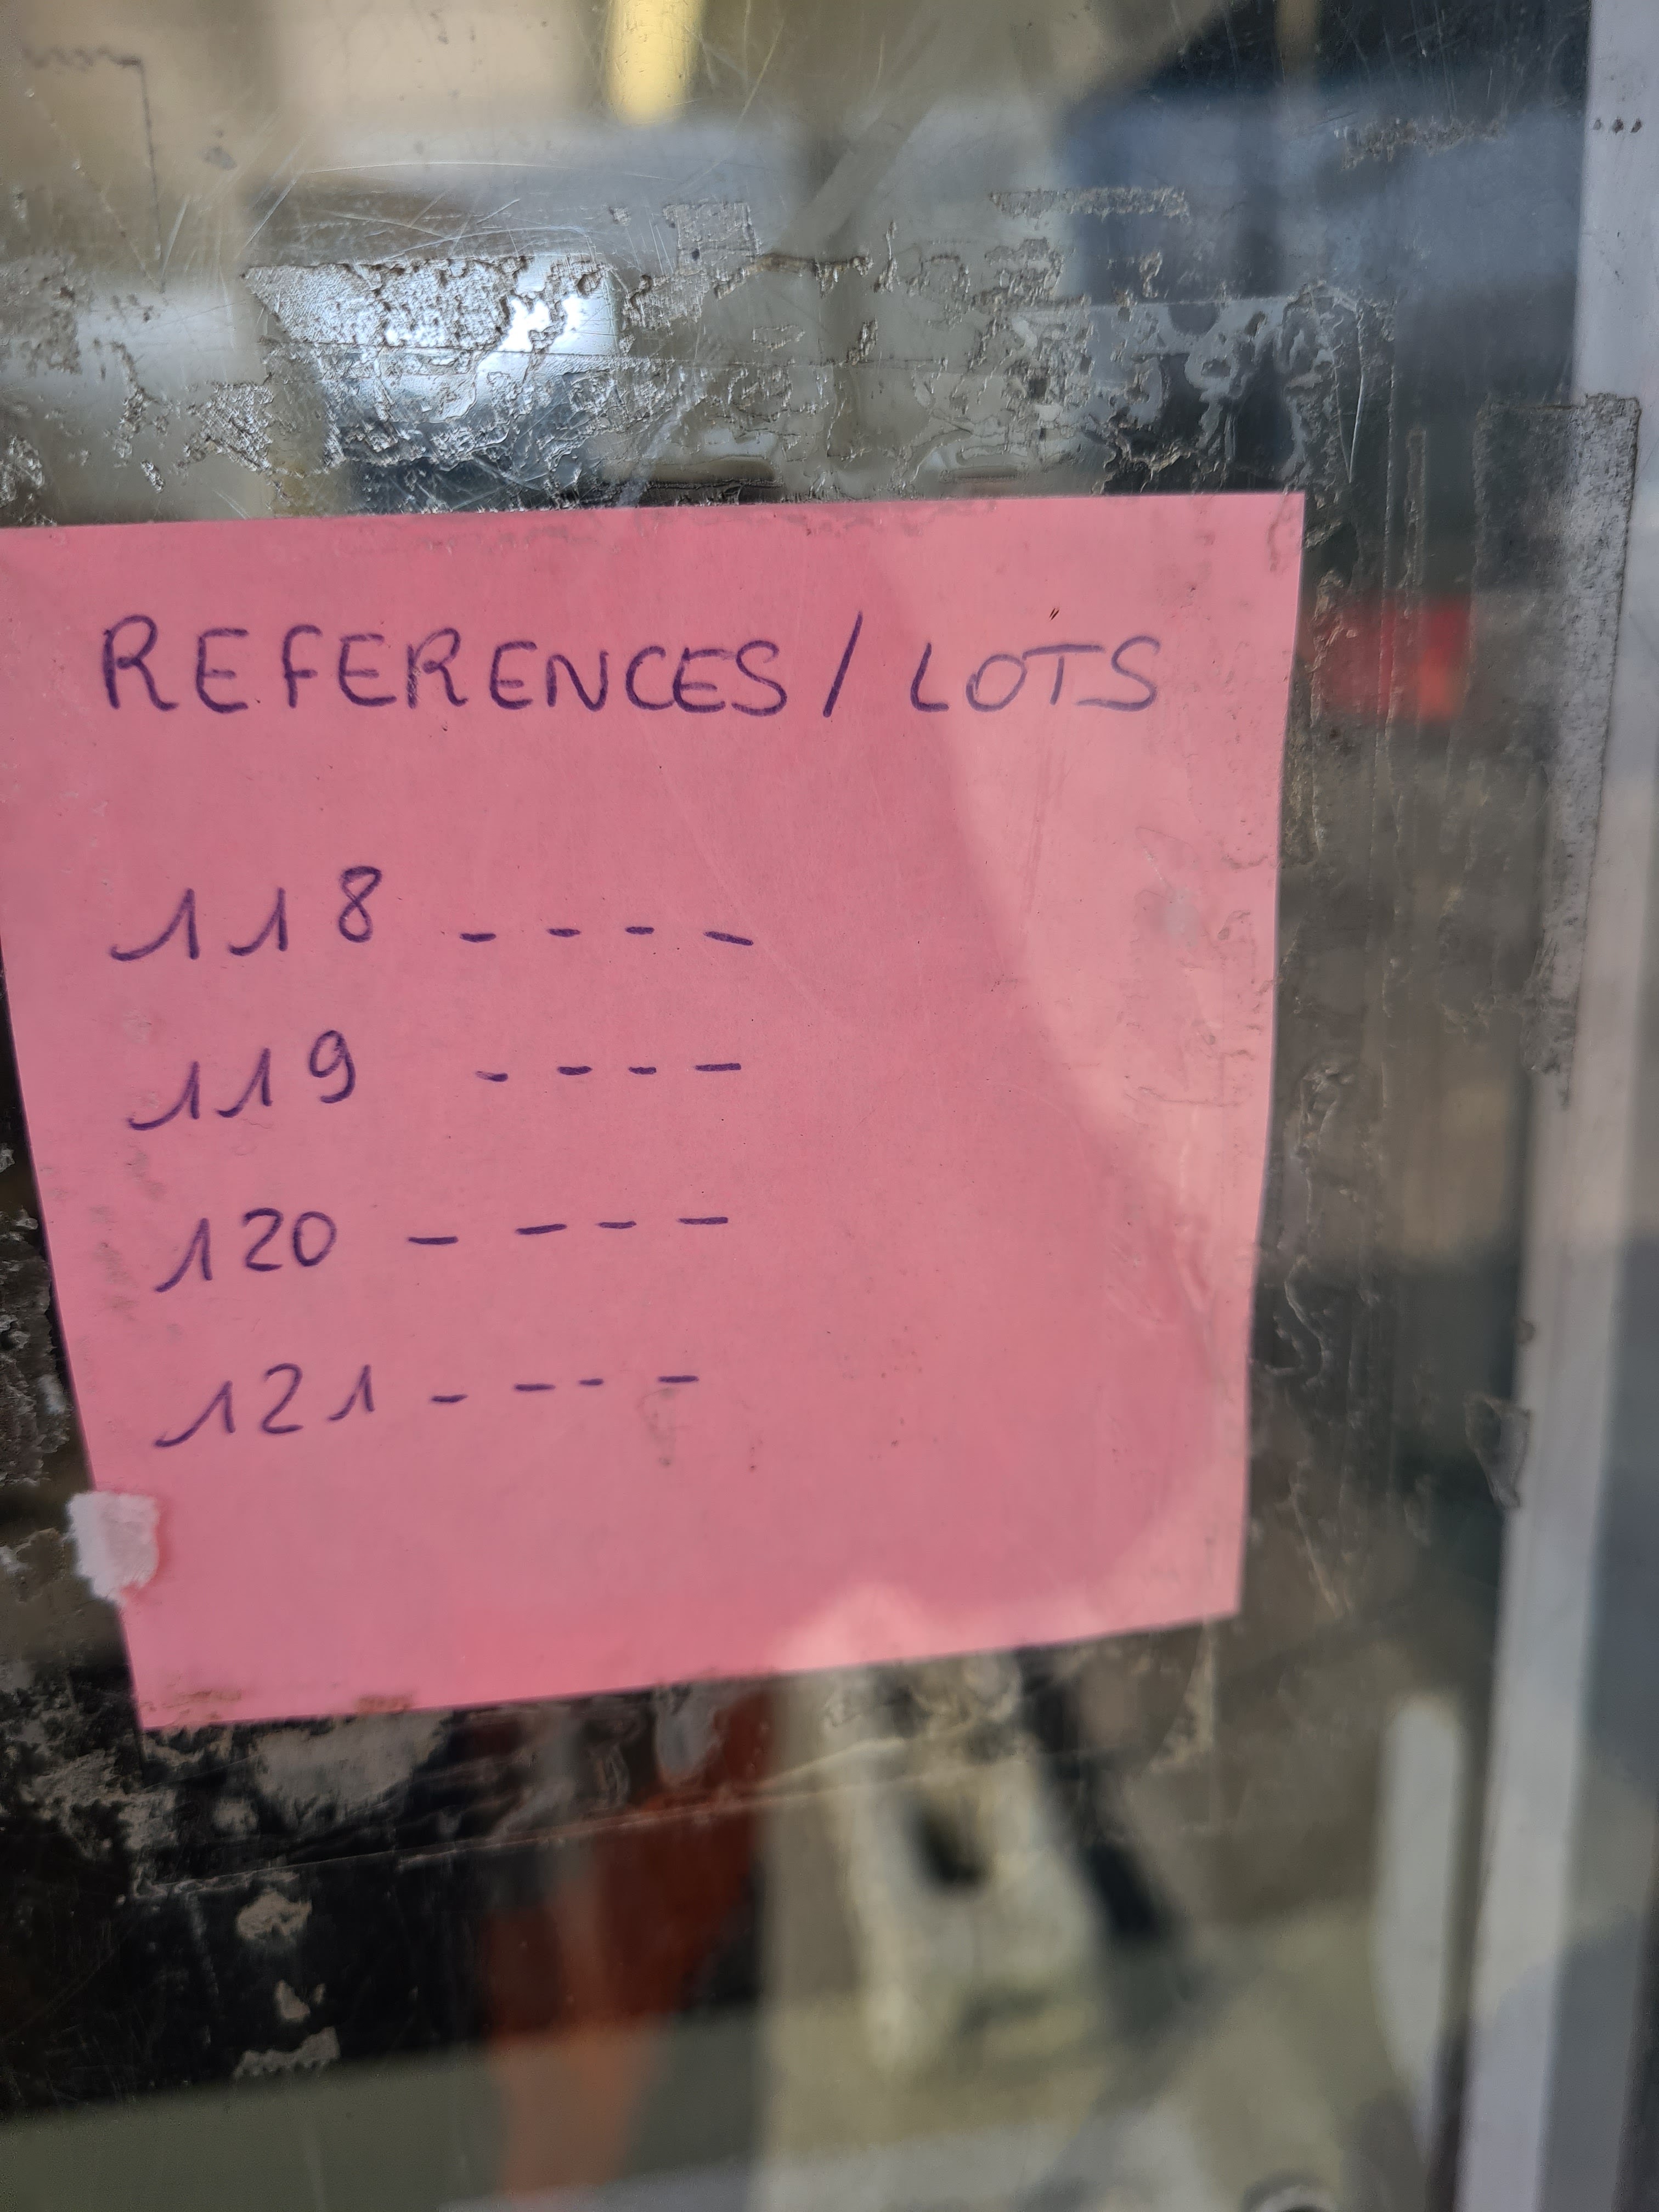 REFERENCES / LOTS
118 - - - -
119 - - - -
120 - - - -
121 - - - -